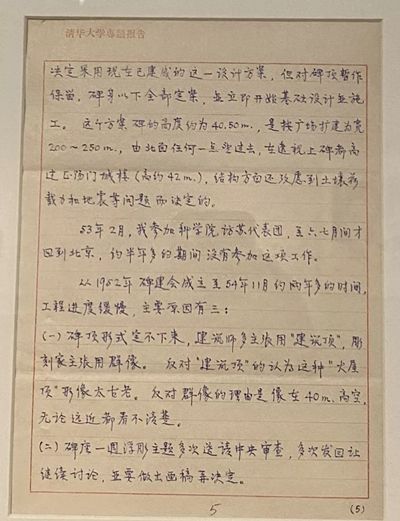 清华大学专题报告
决定采用现在已建成的这一设计方案，但对碑顶暂作
保留，碑身以下全部定案，並立即开始基础设计並施
工。这个方案碑的高度约为40.50m.，是按广场扩建为宽
200～250m.，由北面任何一点望过去，在透视上碑都高
过正阳门城楼（高约42m.），结构方面还考虑到土壤荷
载力和地震等问题而决定的。
53年2月，我参加科学院访苏代表团，至六、七月间才
回到北京，约半年多的期间没有参加这项工作。
从1952年碑建会成立至54年11月约两年多的时间，
工程进度缓慢，主要原因有三：
(一)碑顶形式定不下来，建筑师多主张用“建筑顶”，彫
刻家主张用群像。反对“建筑顶”的认为这种“大屋
顶”形像太古老。反对群像的理由是像在40m.高空，
无论远近都看不清楚。
(二)碑座一週浮彫主题多次送请中央审查，多次发回让
继续讨论，並要做出画稿再决定。
5
(5)